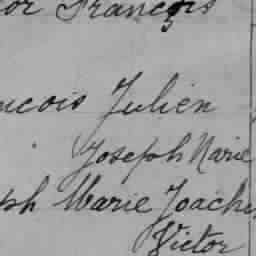 or François
ncois Julien
Joseph Marie
ph Marie Joachi
Victor